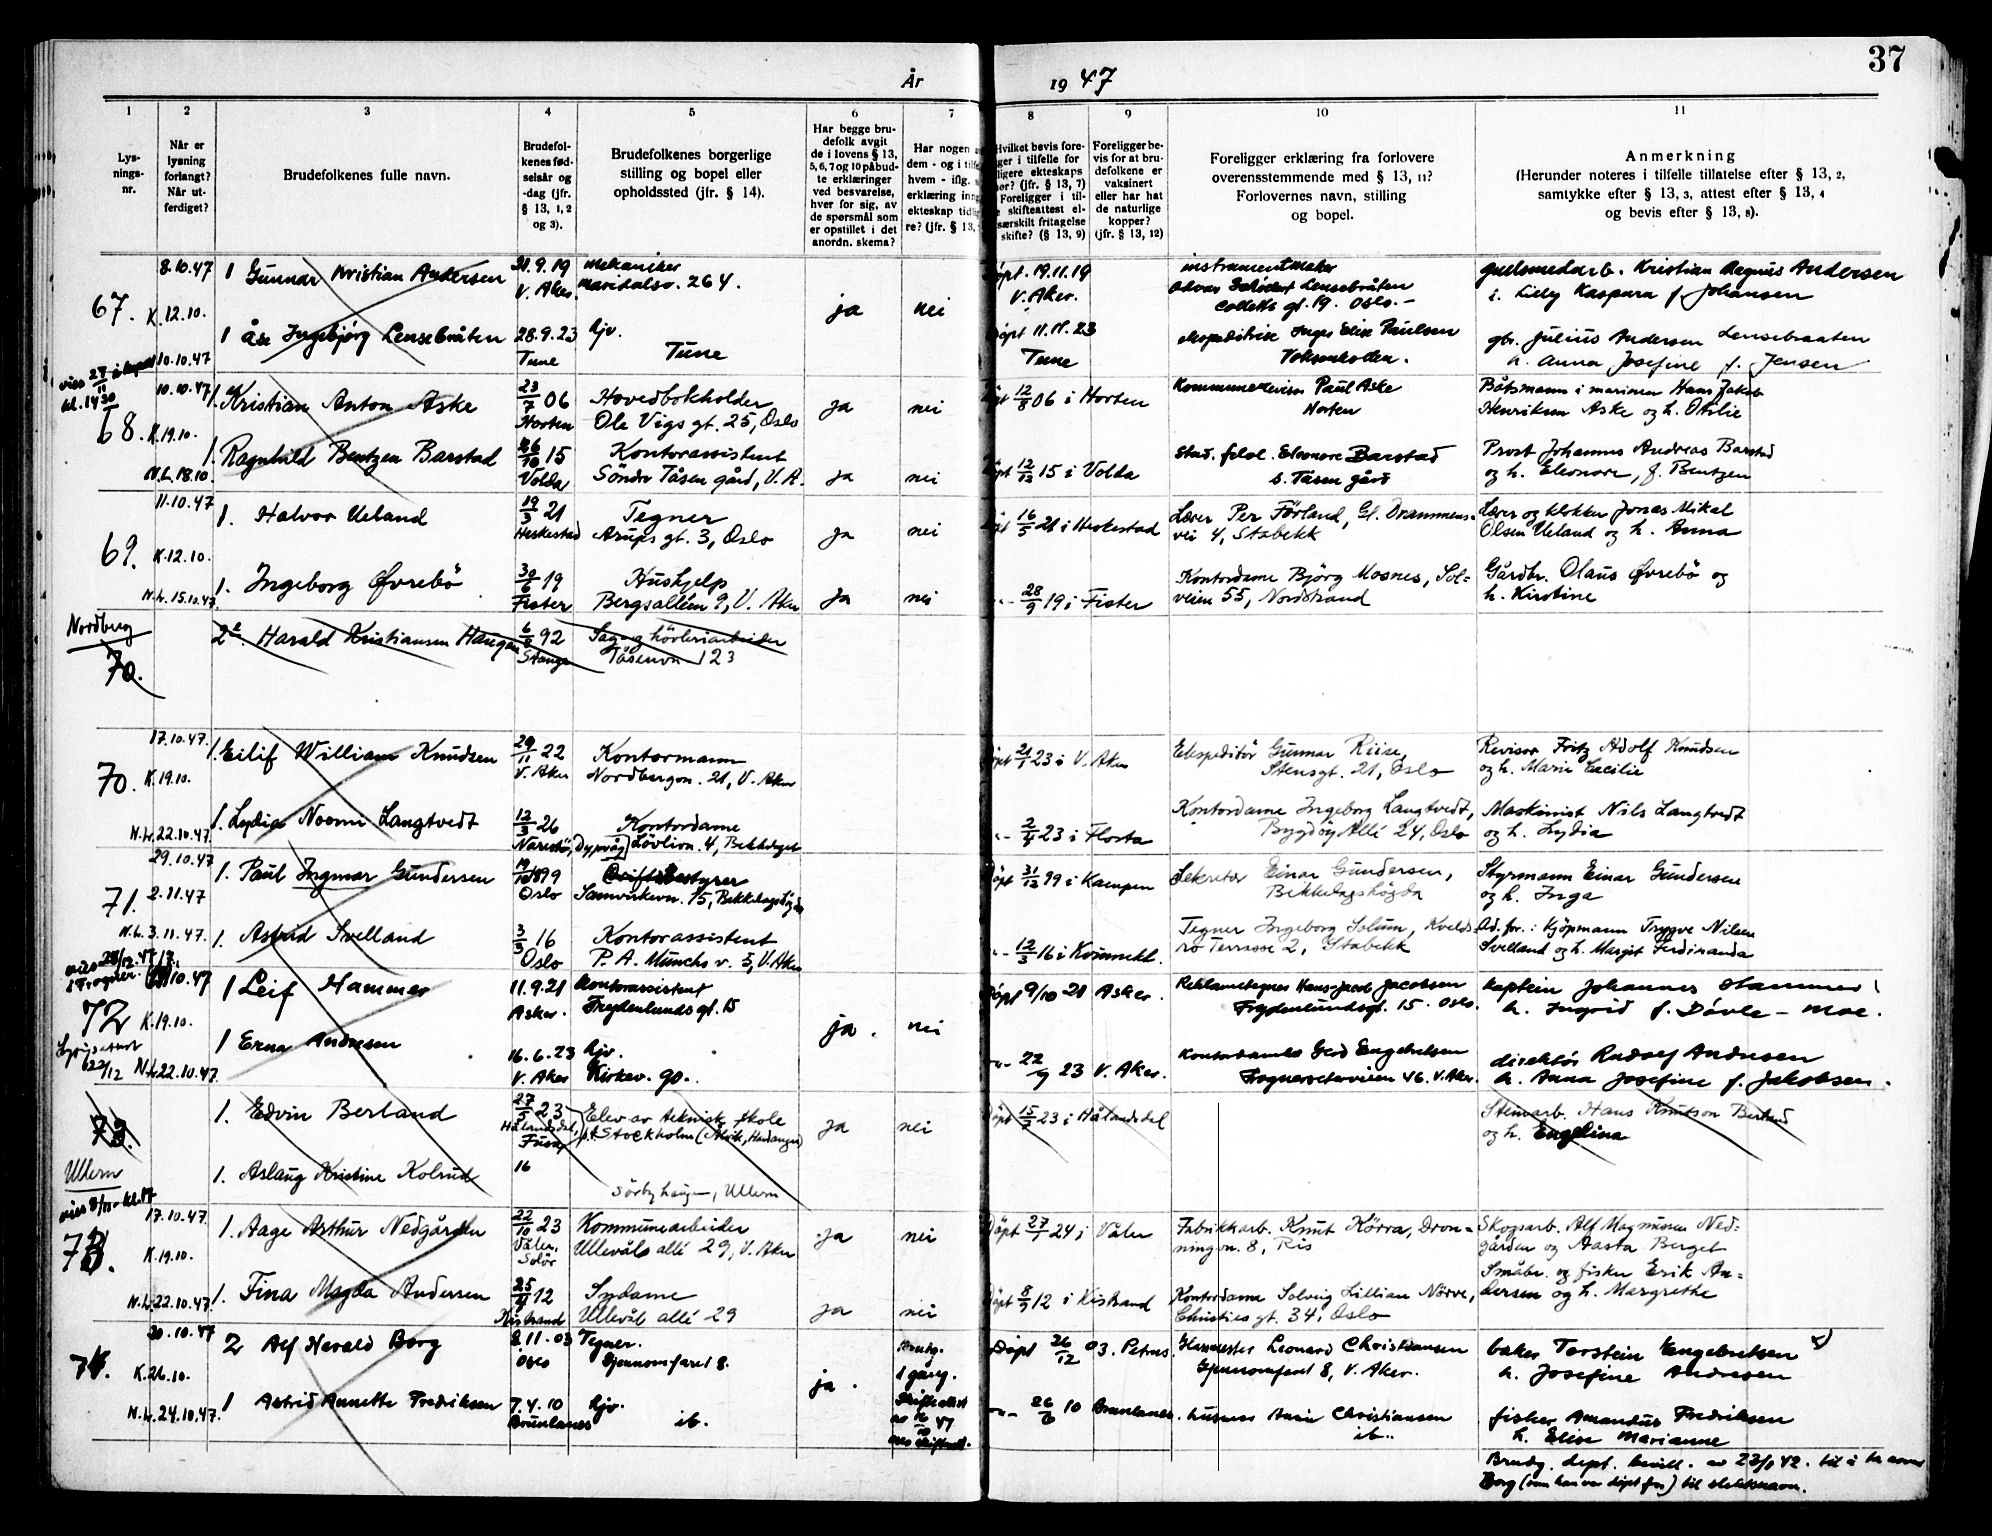 37
År 1947
1 2 3 4 5 6 7 8 9 10 11
Lys-
nings-
nr.
Når er
lysning
forlangt?
Når ut-
ferdiget?
Brudefolkenes fulle navn.
Brudefol-
kenes fød-
selsår og
-dag (jfr.
§ 13, 1, 2
og 3).
Brudefolkenes borgerlige
stilling og bopel eller
opholdssted (jfr. § 14).
Har begge bru-
defolk avgit
de i lovens § 13,
5, 6, 7 og 10 påbud-
te erklæringer
ved besvarelse,
hver for sig, av
de spørsmål som
er opstillet i det
anordn. skema?
Har nogen
dem - og i
hvem - iflg.
erklæring
ekteskap
re? (jfr. § 13,
Hvilket bevis fore-
ger i tilfelle for
ligere ekteskaps
(jfr. § 13, 7)
Foreligger i til-
skifteattest el-
særskilt fritagelse
skifte? (§ 13, 9)
Foreligger be-
vis for at bru-
defolkene er
vaksinert
eller har hat
de naturlige
kopper?
(jfr. § 13, 12)
Foreligger erklæring fra forlovere
overensstemmende med § 13, 11?
Forlovernes navn, stilling
og bopel.
Anmerkning
(Herunder noteres i tilfelle tillatelse efter § 13, 2,
samtykke efter § 13, 3, attest efter § 13, 4
og bevis efter § 13, 8).
67. 8.10.47 K. 12.10. 10.10.47
1 Gunnar Kristian Andersen 21.9.19 V. Aker. mekaniker Maridalsv. 264. ja nei
19.11.19 V. Aker. instrumentmaker Lensebråten Colletts gt. 19. Oslo. Kristian Magnus Andersen
Kaspara f. Johansen
1 Åse Ingebjørg Lensebråten 28.9.23 Tune hjv. Tune
11.11.23 Tune Inger Elise Paulsen Voksenkollen.
gbr. Julius Andersen Lensebraaten
h. Anna Josefine f. Jensen
68. 10.10.47 K. 19.10. N.L. 18.10
1. Kristian Anton Aske 23/7 06 Horten Hovedbokholder Ole Vigs gt. 25, Oslo ja nei
12/8 06 i Horten Kommunerevisor Paul Aske Horten
Båtsmann i marinen Hans Jakob
Henriksen Aske og h. Otilie
1. Ragnhild Bentzen Barstad 26/10 15 Volda Kontorassistent Söndre Tåsen gård, V.A. ja nei
12/12 15 i Volda Stud. filol. Eleonore Barstad s. Tåsen gård
Prost Johannes Andreas Barstad
og h. Eleonore, f. Bentzen
69. 11.10.47 K. 12.10. N.L. 15.10.47
1. Halvor Ueland 19/3 21 Heskestad Tegner Arups gt. 3, Oslo ja nei
16/5 21 i Heskestad Lærer Per Förland, Gl. Drammens-
vei 4, Stabekk
Lærer og klokker Jonas Mikal
Olsen Ueland og h. Anna
1. Ingeborg Øvrebö 30/6 19 Fister Hushjelp Bergsalléen 9, V. Aker ja nei
28/9 19 i Fister Kontordame Björg Mosnes, Sol-
veien 55, Nordstrand
Gårdbr. Olaus Øvrebö og
h. Kirstine
Nordberg
70. Harald Kristiansen Haugen 6/8 92 Stange Sag og hövleriarbeider
Tåsenvn 123
70. 17.10.47. K. 19.10. N.L. 22.10.47
1. Eilif William Knudsen 29/11 22 V. Aker Kontormann Nordbergvn. 21, V. Aker
21/1 23 i V. Aker Ekspeditör Gunnar Riise,
Stensgt. 21, Oslo
Revisor Fritz Adolf Knudsen
og h. Marie Cecilie
1. Lydia Noomi Langtvedt 12/3 26 Narestö, Dypvåg Kontordame Lövlivn. 4, Bekkelaget
2/4 23 i Flosta Kontordame Ingeborg Langtvedt,
Bygdöy Allé 24, Oslo
Maskinist Nils Langtvedt
og h. Lydia
71. 29.10.47 2.11.47 N.L. 3.11.47.
1. Paul Ingmar Gundersen 19/10 1899 Oslo Driftsbestyrer
Samvirkevn. 15, Bekkelagshögda
31/12 99 i Kampen Sekretær Einar Gundersen,
Bekkelagshögda
Styrmann Einar Gundersen
og h. Inga
1. Astrid Svelland 3/3 16 Oslo Kontorassistent
P. A. Munchs v. 5, V. Aker
12/3 16 i Tegner Ingeborg Solum,
Terrasse 2, Stabekk
Ad. for.: Kjöpmann Trygve Nilsen
Svelland og h. Margit Ferdinanda
72 10.47 K. 19.10. N.L. 22.10.47
1 Leif Hammer 11.9.21 Asker. Kontorassistent Frydenlunds gt. 15 ja. nei
9/10 21 Asker. Reklametegner Hans Jacob Jacobsen
Frydenlundsgt. 15. Oslo.
kaptein Johannes Hammer
h. Ingrid f. Dövle - Moe.
1 Erna Andresen 16.6.23 V. Aker hjv. Kirkev. 90.
22/9 23 V. Aker. Kontordame Gerd Engebretsen
46. V. Aker.
direktör Rudolf Andresen
h. Anna Josefine f. Jakobsen.
73.
1. Edvin Berland 27/5 23 Hålandsdal, Fusa Elev av teknisk skole
p.t. Stockholm (Ålvik, Hardanger) ja nei
15/7 23 i Hålandsdal Steinarb. Hans Knutson Berland
og h. Engelina
Ullern
1. Aslaug Kristine Kolrud 16
Sörbyhaugen, Ullern
73. 17.10.47 K. 19.10. N.L. 22.10.47.
1. Aage Arthur Nedgården 22/10 23 Våler, Solör Kommunearbeider
Ullevåls allé 29, V. Aker ja nei
27/1 24 i Våler Fabrikkarb. Knut Körra, Dron-
ningvn. 8, Ris
Skogsarb. Alf Magnussen Ned-
gården og Aasta Berget
1. Fina Magda Andersen 25/4 12 Kistrand Sydame
Ullevåls allé 29 ja nei
8/9 12 i Kistrand Kontordame Solveig Lillian Nörve,
Christies gt. 34, Oslo
Småbr. og fisker Erik An-
dersen og h. Margrethe
74. 20.10.47 K. 26.10. N.L. 24.10.47.
2 Alf Harald Borg 8.11.03 Oslo Tegner. Gjennomfaret 8. ja. 1 gang.
Döpt 26/12 03. Petrus. Leonard Christiansen
Gjennomfaret 8, V. Aker.
baker Torstein Engebretsen x)
h. Josefine Andresen
1 Astrid Annette Fredriksen 7.4.10 Brunlanes hjv. ib.
26/6 10 Brunlanes. husmor Christiansen
ib.
fisker Amandus Fredriksen
h. Elise Marianne
Brudg. döpt. bevill. av 23/1 42. til å ta navn
Borg til slektsnavn.